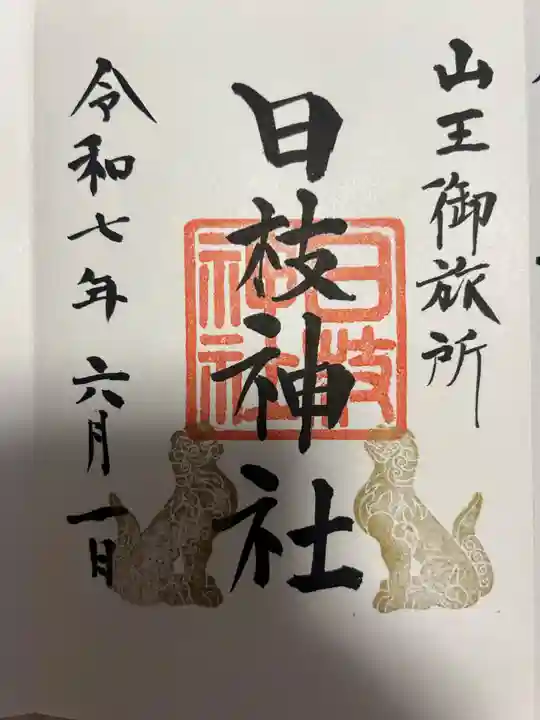 山王御旅所
日枝神社
日枝神社
令和七年六月一日